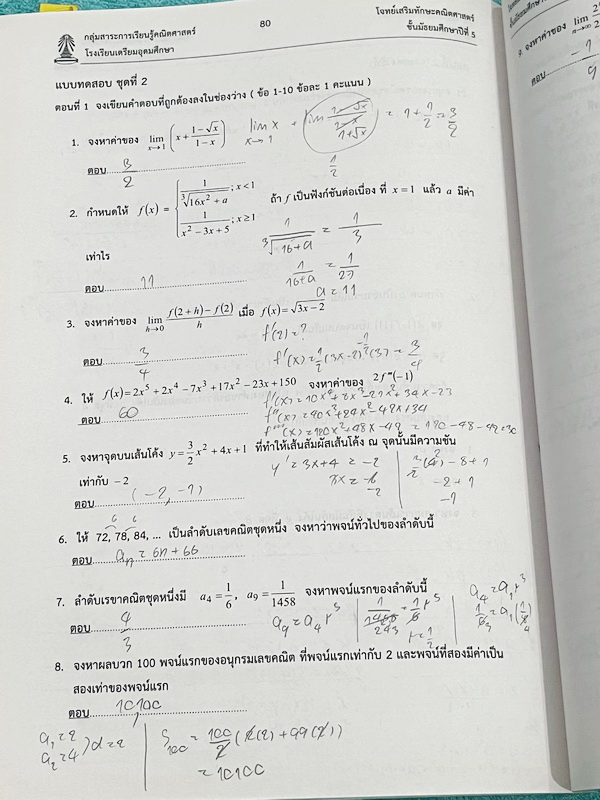 กลุ่มสาระการเรียนรู้คณิตศาสตร์
โรงเรียนเตรียมอุดมศึกษา
80
โจทย์เสริมทักษะคณิตศาสตร์
ชั้นมัธยมศึกษาปีที่ 5
แบบทดสอบ ชุดที่ 2
ตอนที่ 1 จงเขียนคำตอบที่ถูกต้องลงในช่องว่าง ( ข้อ 1-10 ข้อละ 1 คะแนน )
1. จงหาค่าของ lim x→1 (x + (1-√x)/(1-x)) lim x x→1 + lim = 1 + 1/2 = 3/2
1/2
ตอบ 3/2
2. กำหนดให้ f(x) = { 1/∛(16x²+a) ; x < 1 , 1/(x²-3x+5) ; x ≥ 1 ถ้า f เป็นฟังก์ชันต่อเนื่อง ที่ x = 1 แล้ว a มีค่า
เท่าไร
1/∛(16+a) = 1/3
1/(16+a) = 1/27
ตอบ 11
a = 11
3. จงหาค่าของ lim h→0 (f(2+h)-f(2))/h เมื่อ f(x) = √(3x-2)
f'(2) = ?
ตอบ 3/4
f'(x) = 1/2 (3x-2)^(-1/2) (3) = 3/4
4. ให้ f(x) = 2x⁵ + 2x⁴ - 7x³ + 17x² - 23x + 150 จงหาค่าของ 2f'''(-1)
ตอบ 60
5. จงหาจุดบนเส้นโค้ง y = 3/2 x² + 4x + 1 ที่ทำให้เส้นสัมผัสเส้นโค้ง ณ จุดนั้นมีความชัน
เท่ากับ -2
y' = 3x + 4 = -2
3x = -6
-2
-8+1
-2+1
-1
ตอบ (-2, -1)
6 6
6. ให้ 72, 78, 84, ... เป็นลำดับเลขคณิตชุดหนึ่ง จงหาว่าพจน์ทั่วไปของลำดับนี้
ตอบ aₙ = 6n + 66
7. ลำดับเรขาคณิตชุดหนึ่งมี a₄ = 1/6, a₉ = 1/1458 จงหาพจน์แรกของลำดับนี้
ตอบ 4/3
a₄ = a₁r³
8. จงหาผลบวก 100 พจน์แรกของอนุกรมเลขคณิต ที่พจน์แรกเท่ากับ 2 และพจน์ที่สองมีค่าเป็น
สองเท่าของพจน์แรก
ตอบ 10100
a₁ = 2
a₂ = 4 ) d = 2
S₁₀₀ = 100/2 (2(2) + 99(2))
= 10100
9. จงหาค่าของ lim n→∞
ตอบ